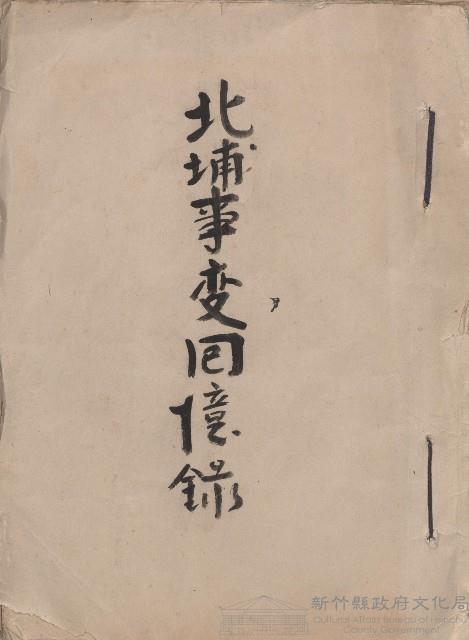 北埔事変回憶録
新竹縣政府文化局
Cultural Affairs Bureau of Hsinchu
County Government